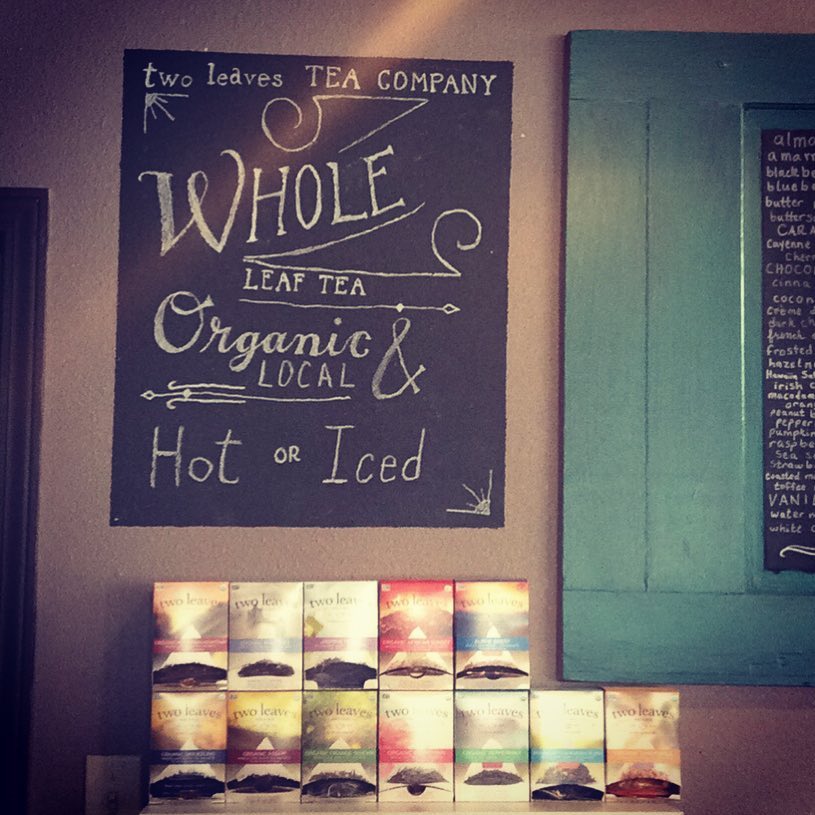 two leaves TEA COMPANY
WHOLE
LEAF TEA
Organic &
LOCAL
Hot OR Iced
almo
amarr
blackbe
bluebe
butter
buttersc
CARA
Cayenne
Cherr
CHOCO
cinna
cocon
crème d
dark ch
french
frosted
hazeln
irish c
macadam
orang
peanut b
pepper
pumpkin
raspbe
sea s
strawb
toasted ma
toffee
VANIL
water m
white c
two leaves
two leaves
two leaves
two leaves
two leaves
two leaves
two leaves
two leaves
two leaves
two leaves
two leaves
two leaves